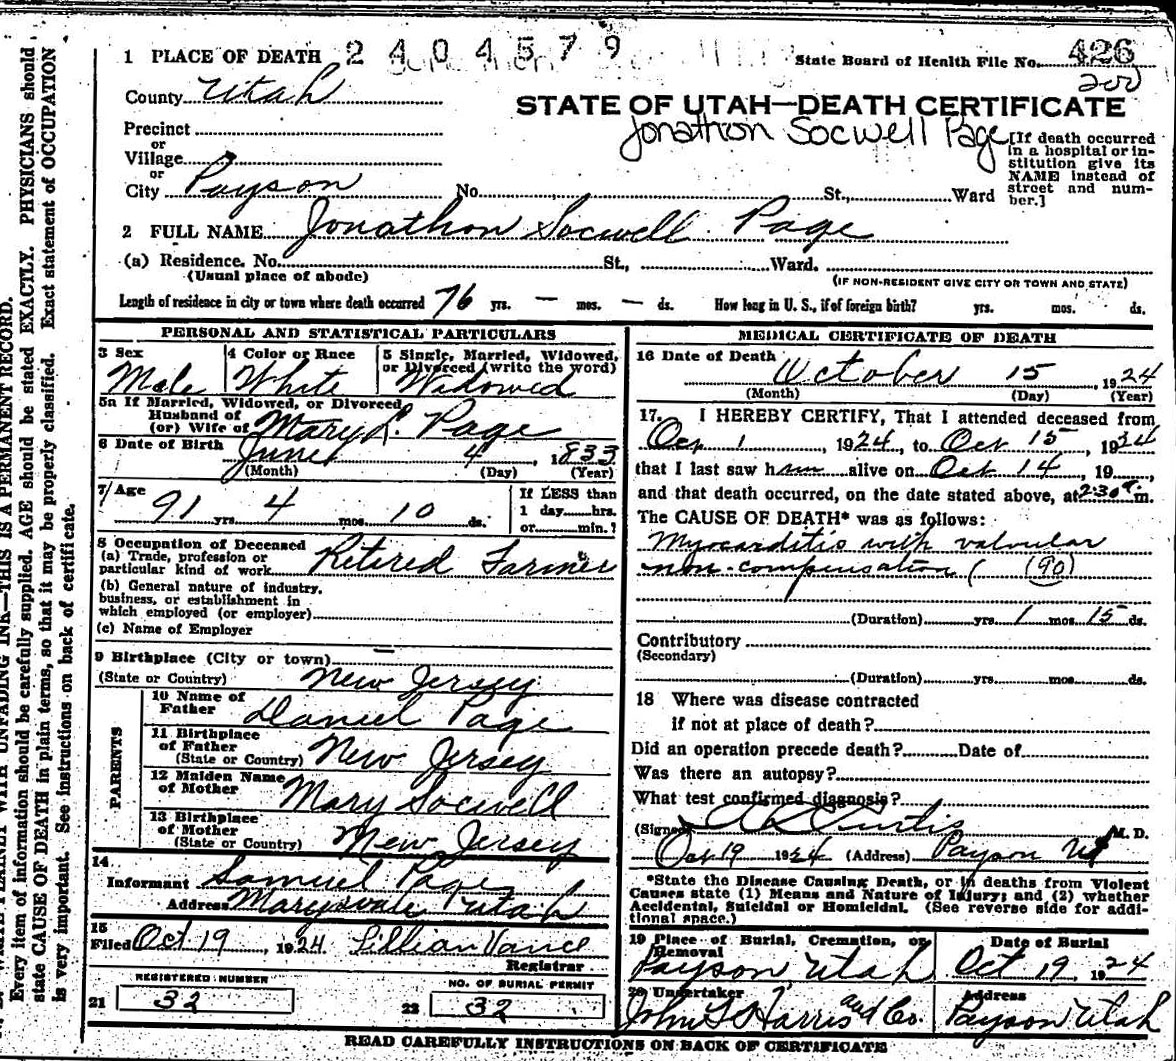 1 PLACE OF DEATH 2 4 0 4 5 7 9
State Board of Health File No. 426
200
County Utah
STATE OF UTAH—DEATH CERTIFICATE
Jonathon Socwell Page
Precinct
or
Village
or
City Payson No. St., Ward
[If death occurred
in a hospital or in-
stitution give its
NAME instead of
street and num-
ber.]
2 FULL NAME Jonathon Socwell Page
(a) Residence. No. St., Ward.
(Usual place of abode)
(IF NON-RESIDENT GIVE CITY OR TOWN AND STATE)
Length of residence in city or town where death occurred 76 yrs. — mos. — ds. How long in U. S., if of foreign birth? yrs. mos. ds.
PERSONAL AND STATISTICAL PARTICULARS
3 Sex
Male
4 Color or Race
White
5 Single, Married, Widowed,
or Divorced (write the word)
Widowed
5a If Married, Widowed, or Divorced
Husband of
(or) Wife of Mary L. Page
6 Date of Birth June 4, 1833
(Month) (Day) (Year)
7 Age
91 yrs. 4 mos. 10 ds.
If LESS than
1 day hrs.
or min.?
8 Occupation of Deceased
(a) Trade, profession or
particular kind of work Retired Farmer
(b) General nature of industry,
business, or establishment in
which employed (or employer)
(c) Name of Employer —
9 Birthplace (City or town)
(State or Country) New Jersey
PARENTS
10 Name of
Father Daniel Page
11 Birthplace
of Father
(State or Country) New Jersey
12 Maiden Name
of Mother Mary Socwell
13 Birthplace
of Mother
(State or Country) New Jersey
14
Informant Samuel Page
Address Marysvale Utah
15
Filed Oct 19, 1924. Lillian Vance
Registrar
REGISTERED NUMBER
21 32
NO. OF BURIAL PERMIT
22 32
MEDICAL CERTIFICATE OF DEATH
16 Date of Death October 15, 1924
(Month) (Day) (Year)
17. I HEREBY CERTIFY, That I attended deceased from
Oct 1, 1924, to Oct 15, 1924
that I last saw him alive on Oct 14, 19
and that death occurred, on the date stated above, at 2:30 m.
The CAUSE OF DEATH* was as follows:
Myocarditis with valvular
non-compensation ( (90)
(Duration) yrs. 1 mos. 15 ds.
Contributory
(Secondary)
(Duration) yrs. mos. ds.
18 Where was disease contracted
if not at place of death?
Did an operation precede death? Date of
Was there an autopsy?
What test confirmed diagnosis?
(Signed) Curtis M. D.
Oct 19 1924 (Address) Payson Ut
*State the Disease Causing Death, or in deaths from Violent
Causes state (1) Means and Nature of Injury; and (2) whether
Accidental, Suicidal or Homicidal. (See reverse side for addi-
tional space.)
19 Place of Burial, Cremation, or
Removal
Payson Utah
Date of Burial
Oct 19, 1924
20 Undertaker
John S Harris and Co.
Address
Payson Utah
READ CAREFULLY INSTRUCTIONS ON BACK OF CERTIFICATE
WITH UNFADING INK—THIS IS A PERMANENT RECORD.
Every item of information should be carefully supplied. AGE should be stated EXACTLY. PHYSICIANS should
state CAUSE OF DEATH in plain terms, so that it may be properly classified. Exact statement of OCCUPATION
is very important. See instructions on back of certificate.